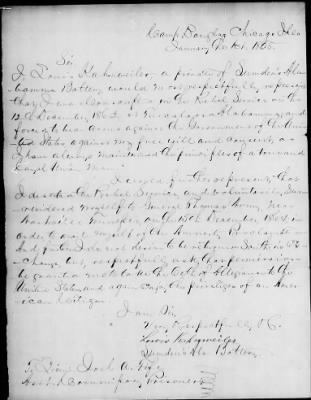 Camp Douglas Chicago Ills
January 1st, 1865.
Sir
I, Louis Kahnweiler, a private of Lumsden's Ala-
bama Battery would most respectfully represent
that I was conscripted in the Rebel Service on the
12th December 1862, in Alabama, and
forced to bear arms against the Government of the Uni-
ted States against my free will and consent, as
I have always maintained the principles of a true and
Loyal Union Man.
I would further represent, that
I deserted the Rebel Service and voluntarily Surr-
endered myself to General Thomas Army, near
Nashville Tennessee on the 15th December 1864, in
order to avail myself of the Amnesty Proclamation
And further I do not desire to be sent South on Ex-
change but, respectfully ask that permission
be granted me to take the Oath of Allegiance to the
United States and again enjoy the privileges of an Amer-
ican Citizen.
I am Sir
Very Respectfully &c.
Louis Kahnweiler
Lumsden's Ala Battery
To
Prisoners